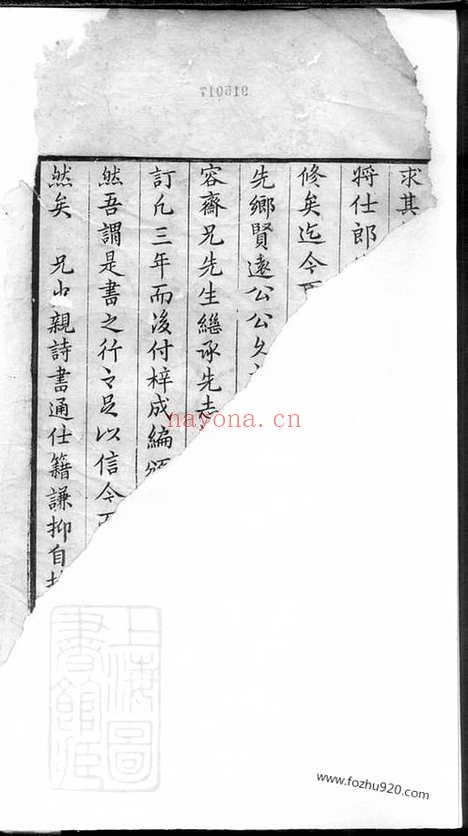 916017
求其
将仕郎
修矣迄今百
先鄉賢遠公公久
容齋兄先生繼承先志
訂凡三年而後付梓成編頒
然吾謂是書之行之足以信今百
然矣 兄少親詩書通仕籍謙抑自
nayona.cn
上海圖書館藏
www.fozhu920.com